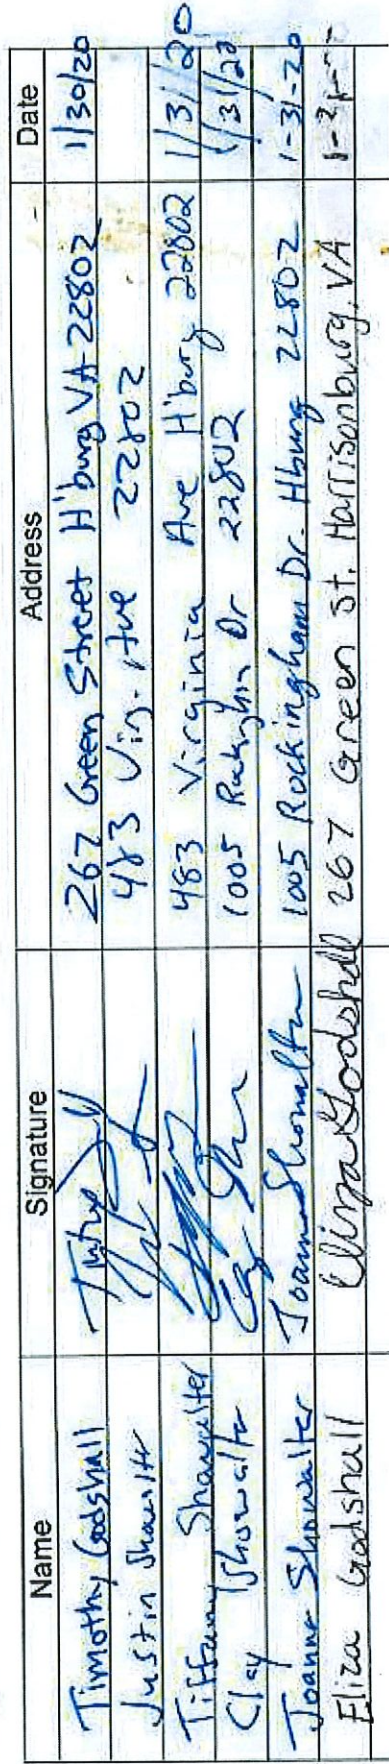 Name Signature Address Date
Timothy Godshall 267 Green Street H'burg VA 22802 1/30/20
Justin Showalter 483 Vir. Ave 22802
Tiffany Showalter 483 Virginia Ave H'burg 22802 1/31/20
Clay Showalter 1005 Rockingham Dr 22802 1/31/20
Joanne Showalter Joanne Showalter 1005 Rockingham Dr. Hburg 22802 1-31-20
Eliza Godshall Eliza Godshall 267 Green St. Harrisonburg, VA